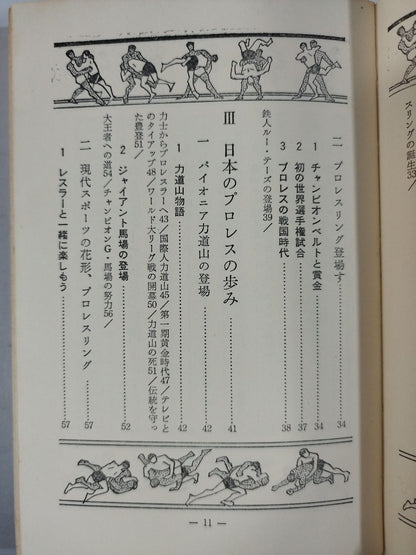 スリングの誕生33
二 プロレスリング登場す……34
1 チャンピオンベルトと賞金……34
2 初の世界選手権試合……37
3 プロレスの戦国時代……38
鉄人ルー・テーズの登場39／
Ⅲ 日本のプロレスの歩み……41
一 パイオニア力道山の登場……42
1 力道山物語……42
力士からプロレスラーへ43／国際人力道山45／第一期黄金時代47／テレビと
のタイアップ48／ワールド大リーグ戦の開幕50／力道山の死51／伝統を守っ
た豊登51／
2 ジャイアント馬場の登場……52
大王者への道54／チャンピオンG・馬場の努力56／
二 現代スポーツの花形、プロレスリング……57
1 レスラーと一緒に楽しもう……57
— 11 —